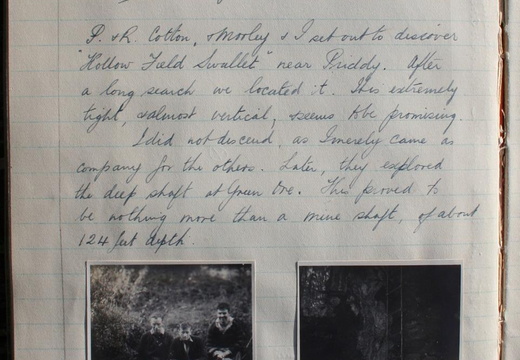 P. & R. Cotton, & Morley & I set out to discover
"Hollow Field Swallet" near Priddy. After
a long search we located it. It is extremely
tight, & almost vertical, & seems to be promising.
I did not descend, as I merely came as
company for the others. Later, they explored
the deep shaft at Green Ore. This proved to
be nothing more than a mine shaft, of about
124 feet depth.